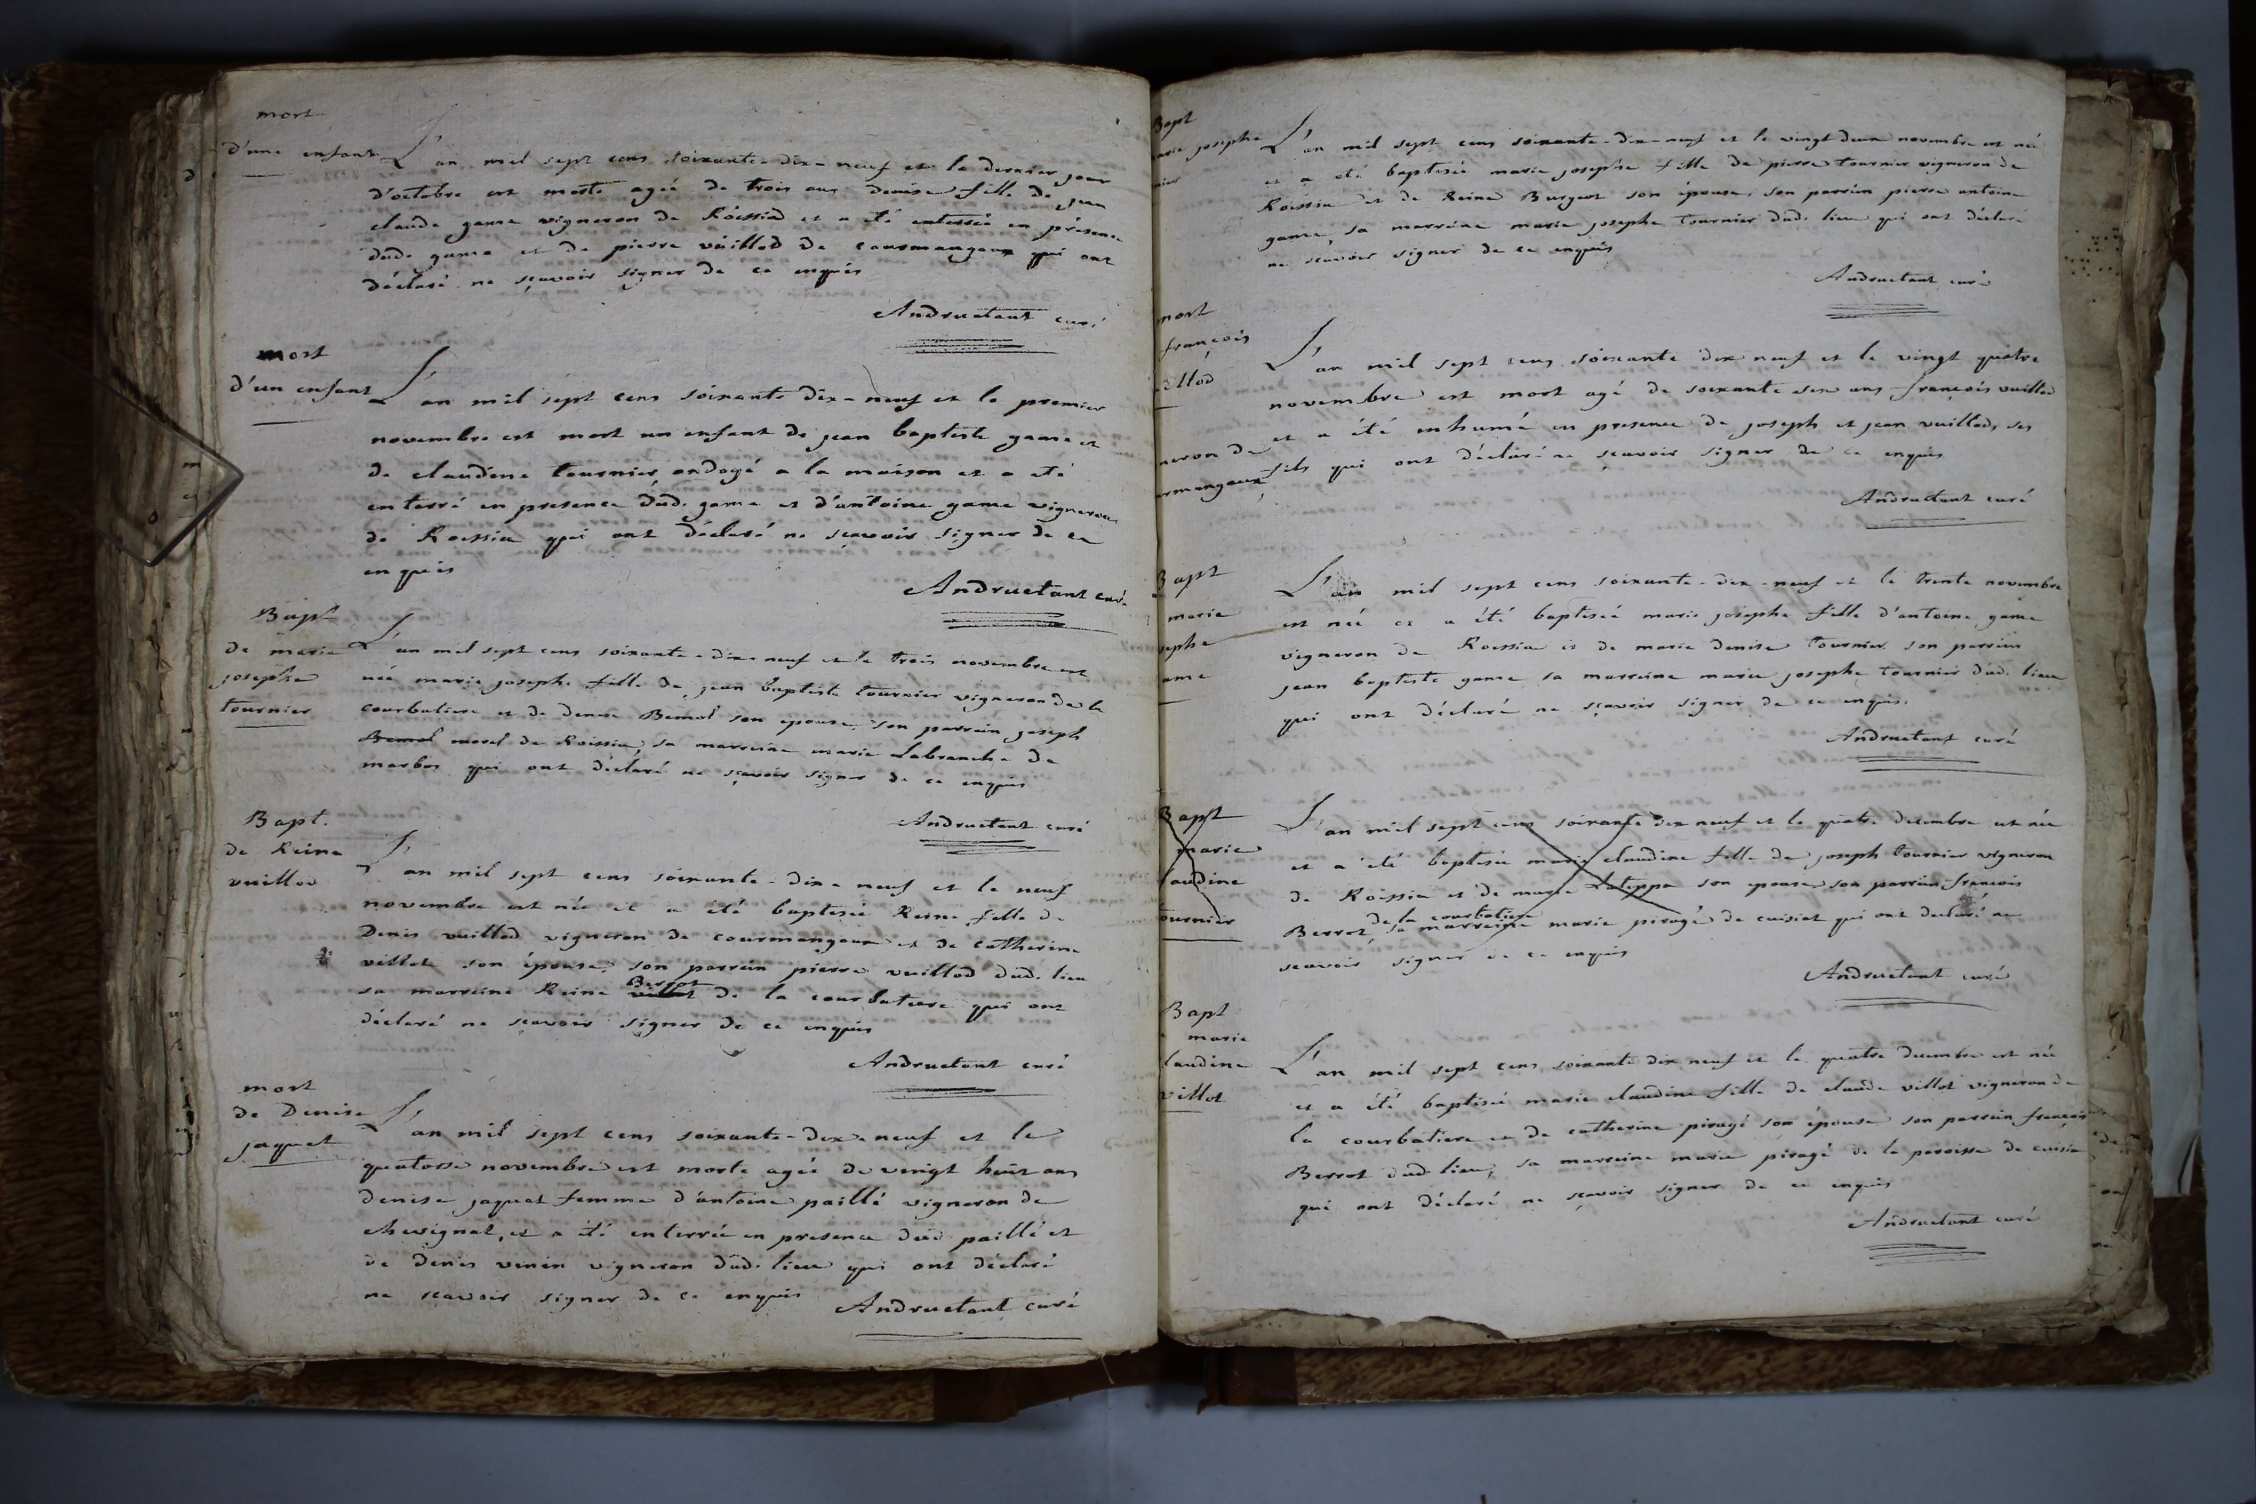 mort
d'une enfant
L'an mil sept cens soixante-dix-neuf et le dernier jour
d'octobre est morte agée de trois ans denise fille de jean
claude game vigneron de Roissia et a été enterrée en présence
dud. game et de pierre vuillod de courmangoux qui ont
déclaré ne sçavoir signer de ce enquis
Andruetant curé
mort
d'un enfant
L'an mil sept cens soixante dix-neuf et le premier
novembre est mort un enfant de jean baptiste game et
de claudine tournier ondoyé a la maison et a eté
enterré en presence dud. game et d'antoine game vignerons
de Roissia qui ont déclaré ne sçavoir signer de ce
enquis
Andruetant curé
Bapt
de marie
josephe
tournier
L'an mil sept cens soixante-dix-neuf et le trois novembre est
née marie josephe fille de jean baptiste tournier vigneron de la
courbatiere et de denise Bemol son epouse, son parrein joseph
Bemol morel de Roissia, sa marreine marie Labranche de
marbos qui ont déclaré ne sçavoir signer de ce enquis
Andruetant curé
Bapt.
de Reine
vuillod
L'an mil sept cens soixante-dix-neuf et le neuf
novembre est née et a été baptisée Reine fille de
Denis vuillod vigneron de courmangoux et de catherine
villot son épouse, son parrein pierre vuillod dud. lieu
sa marreine Reine villot Berrot de la courbatiere qui ont
déclaré ne sçavoir signer de ce enquis
Andruetant curé
mort
de Denise
jaquet
L'an mil sept cens soixante-dix-neuf et le
quatorse novembre est morte agée de vingt huit ans
denise jaquet femme d'antoine paillé vigneron de
chevignat, et a été enterrée en presence dud. paillé et
de denis venin vigneron dud. lieu qui ont déclaré
ne scavoir signer de ce enquis
Andruetant curé
Bapt
marie josephe
nier
L'an mil sept cens soixante-dix-neuf et le vingt deux novembre est née
et a été baptisée marie josephe fille de pierre tournier vigneron de
Roissia et de Reine Burgeot son épouse, son parrein pierre antoine
game, sa marreine marie josephe tournier dud. lieu qui ont déclaré
ne scavoir signer de ce enquis
Andruetant curé
mort
françois
illod
L'an mil sept cens soixante dix neuf et le vingt quatre
novembre est mort agé de soixante six ans françois vuillod
neron de
et a été inhumé en presence de joseph et jean vuillods ses
rmangoux
fils qui ont déclaré ne sçavoir signer de ce enquis
Andruetant curé
Bapt
marie
sephe
ame
L'an mil sept cens soixante-dix-neuf et le trente novembre
est née et a été baptisée marie josephe fille d'antoine game
vigneron de Roissia et de marie denise tournier son parrein
jean baptiste game sa marreine marie josephe tournier dud. lieu
qui ont déclaré ne sçavoir signer de ce enquis.
Andruetant curé
Bapt
marie
laudine
ournier
L'an mil sept cens soixante dix neuf et le quatre decembre est née
et a été baptisée marie claudine fille de joseph tournier vigneron
de Roissia et de marie Lateppe son epouse, son parrein françois
Berrot de la courbatiere, sa marreine marie piragé de cuisiat qui ont declaré ne
scavoir signer de ce enquis
Andruetant curé
Bapt
marie
laudine
villot
L'an mil sept cens soixante dix neuf et le quatre decembre est née
et a été baptisée marie claudine fille de claude villot vigneron de
la courbatiere et de catherine piragé son épouse son parrein françois
Berrot dud. lieu, sa marreine marie piragé de la paroisse de cuisia
qui ont déclaré ne sçavoir signer de ce enquis
Andruetant curé